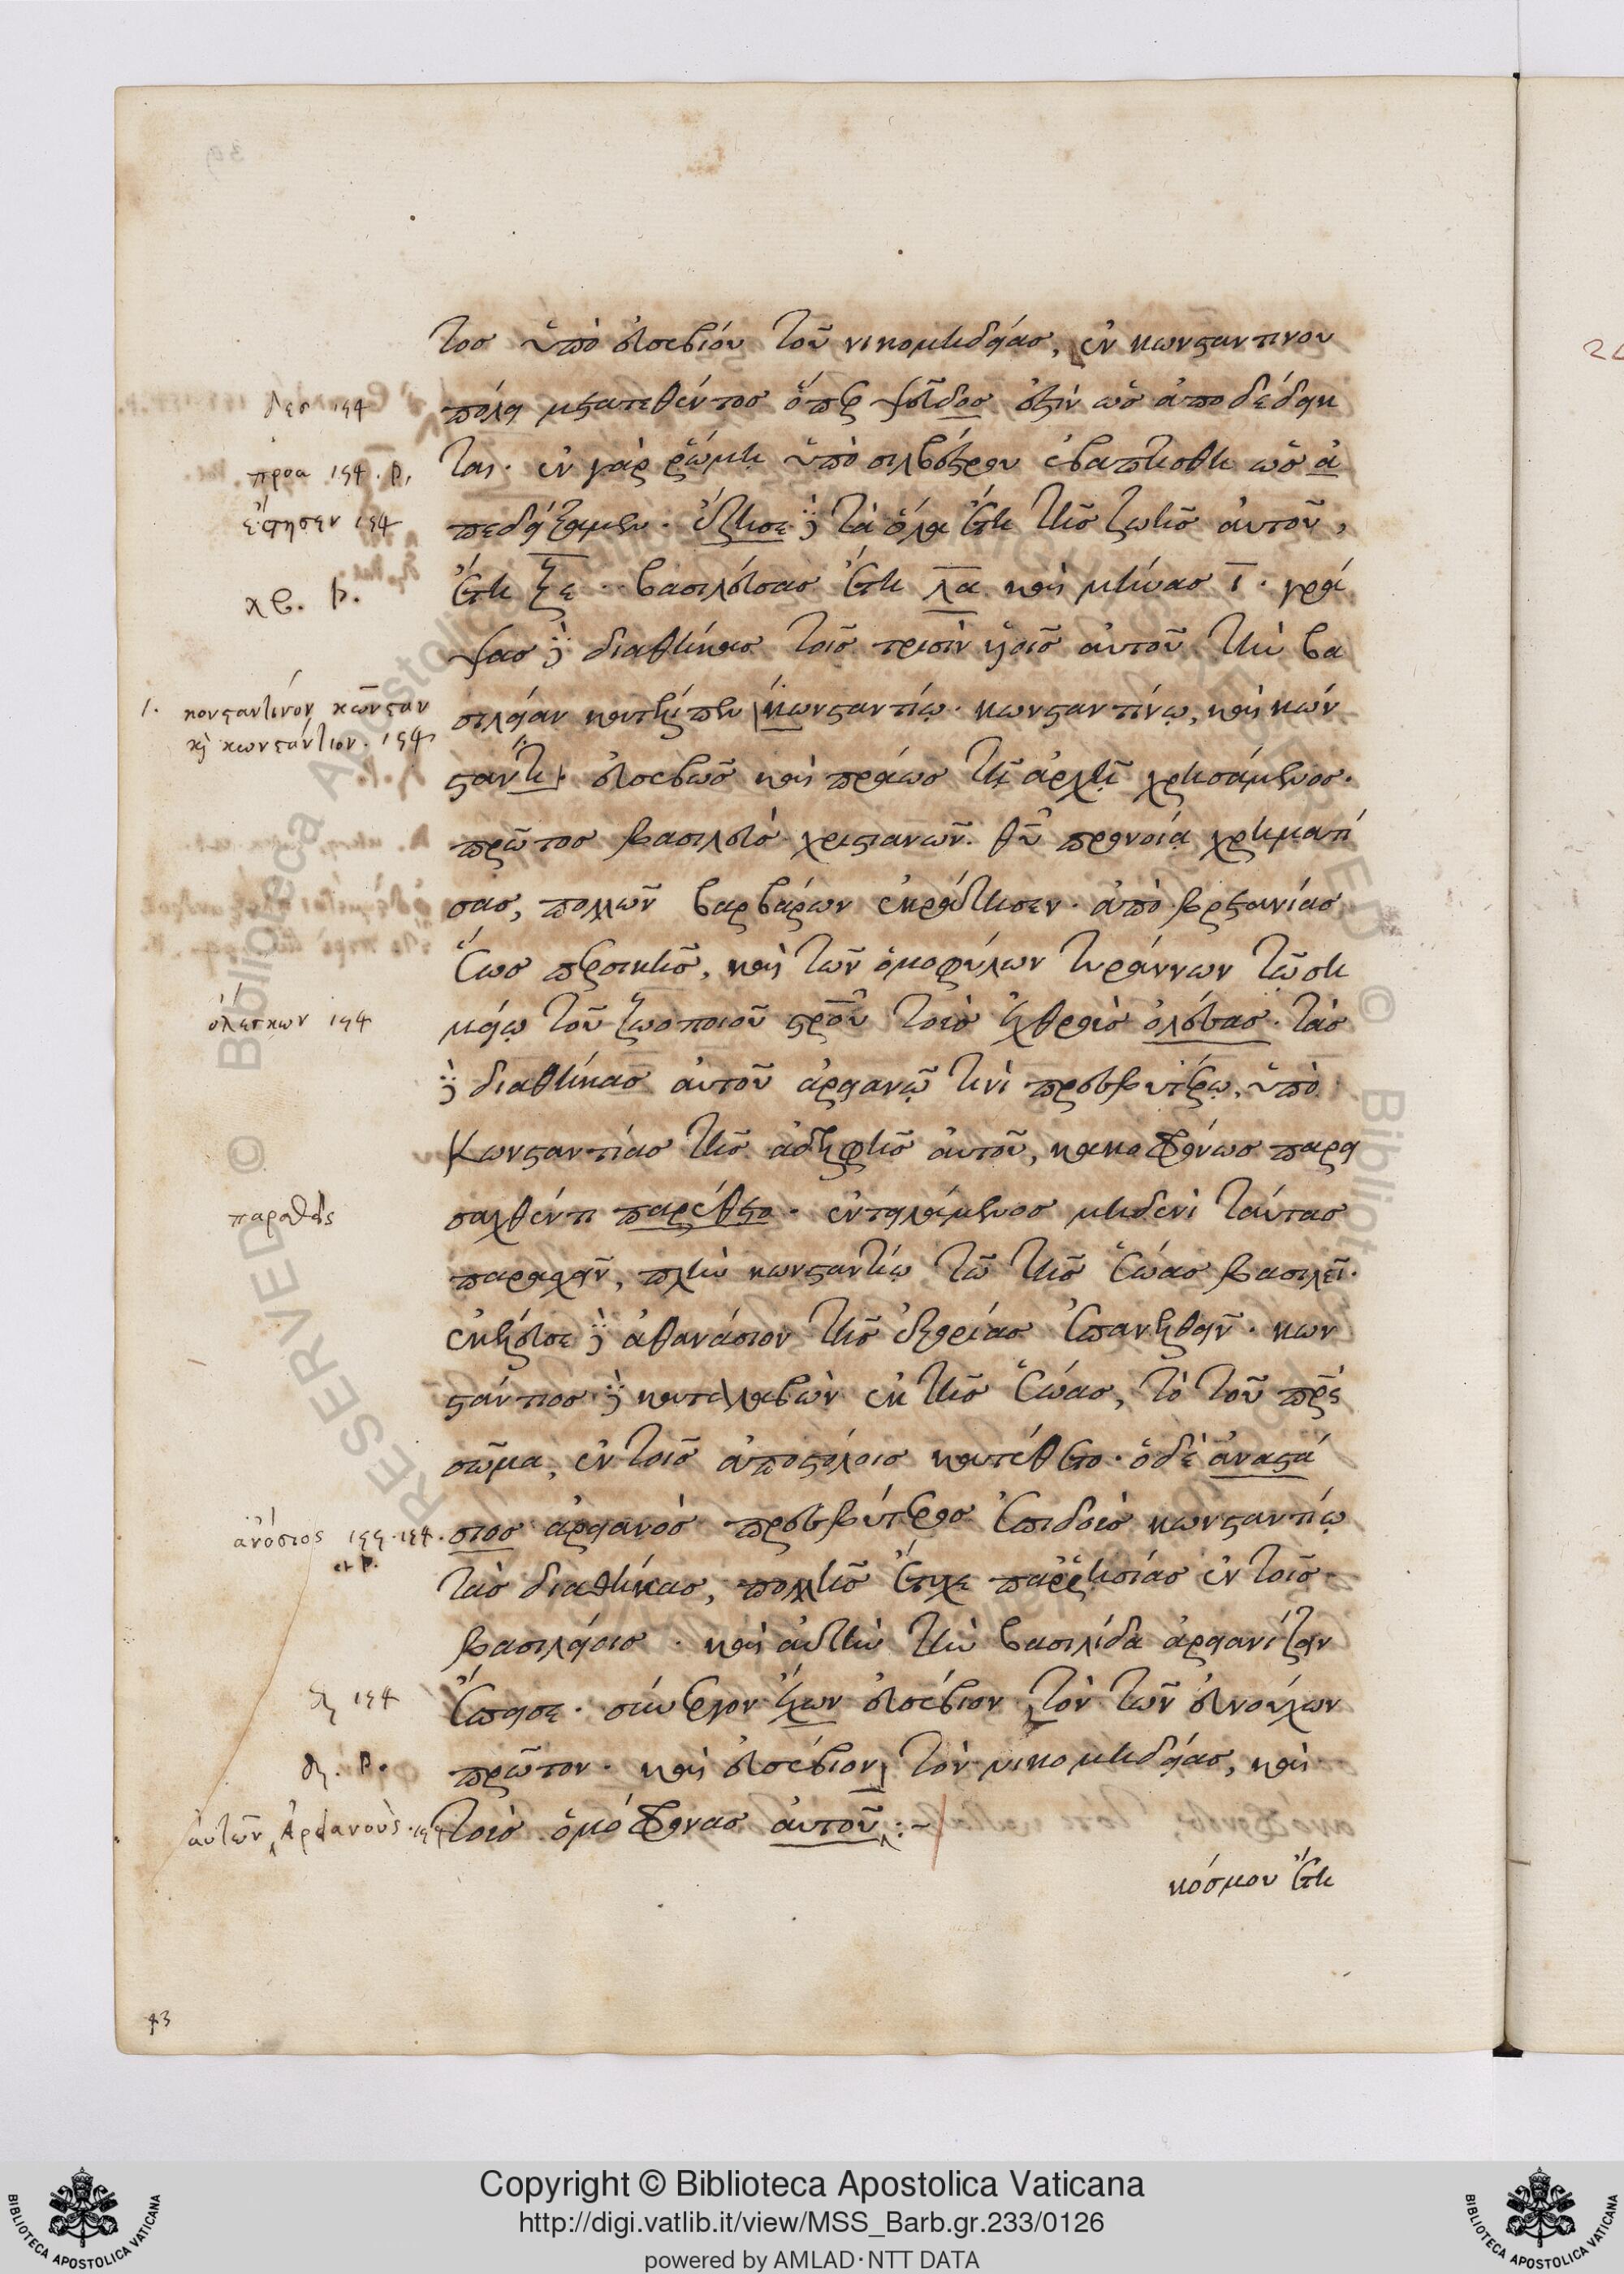 τος ὑπὸ εὐσεβίου τοῦ νικομηδείας, ἐν κωνσταντινου
πόλει μετατεθέντος ὅπερ ψεῦδος ἐστὶν ὡς ἀποδέδεικ
ται· ἐν γὰρ ῥώμῃ ὑπὸ σιλβέστρου ἐβαπτίσθη ὡς ἀ
πεδείξαμεν· ἔζησε δὲ τὰ ὅλα ἔτη τῆς ζωῆς αὐτοῦ,
ἔτη ξε· βασιλεύσας ἔτη λα καὶ μῆνας ι· γρά
ψας δὲ διαθήκας τοῖς τρισὶν υἱοῖς αὐτοῦ τὴν βα
σιλείαν κατέλιπεν κωνσταντίῳ· κωνσταντίνῳ, καὶ κών
σταντι· εὐσεβῶς καὶ πράως τῇ ἀρχῇ χρησάμενος·
πρῶτος βασιλεὺς χριστιανῶν. θῦ προνοίᾳ χρηματί
σας, πολλῶν βαρβάρων ἐκράτησεν· ἀπὸ βρετανίας
ἕως περσικῆς, καὶ τῶν ὁμοφύλων τυράννων τῷ ση
μείῳ τοῦ ζωοποιοῦ σροῦ τοὺς ἐχθροὺς ὀλέσας· τὰς
δὲ διαθήκας αὐτοῦ ἀρειανῷ τινὶ πρεσβυτέρῳ, ὑπὸ
Κωνσταντίας τῆς ἀδελφῆς αὐτοῦ, κακοφρόνως παρει
σαχθέντι παρέθετο· ἐντειλάμενος μηδενὶ ταύτας
παρασχεῖν, πλὴν κωνσταντίῳ τῷ τῆς ἑώας βασιλεῖ·
ἐκέλευσε δὲ ἀθανάσιον τῆς ἐξορίας ἐπανελθεῖν· κων
στάντιος δὲ καταλαβὼν ἐκ τῆς ἑώας, τὸ τοῦ πρς
σῶμα, ἐν τοῖς ἀποστόλοις κατέθετο· ὁ δὲ ἀναστά
σιος ἀρειανὸς πρεσβύτερος ἐπιδοὺς κωνσταντίῳ
τὰς διαθήκας, πολλῆς ἔτυχε παρρησίας ἐν τοῖς
βασιλείοις· καὶ αὐτὴν τὴν βασιλίδα ἀρειανίζειν
ἔπεισε· σύνεργον ἔχων εὐσέβιον τὸν τῶν εὐνούχων
πρῶτον· καὶ εὐσέβιον τὸν νικομηδείας, καὶ
τοὺς ὁμόφρονας αὐτοῦ :~
κόσμου ἔτη
ἔφησεν 154
κονσταντίνον κῶνσταν
κὶ κωνστάντιον. 154
ὀλέσκων 154
ἀνόσιος 155. 154.
et P.
αὐτῶν Ἀρειανοὺς 154
43
Copyright © Biblioteca Apostolica Vaticana
http://digi.vatlib.it/view/MSS_Barb.gr.233/0126
powered by AMLAD·NTT DATA
BIBLIOTECA APOSTOLICA VATICANA
BIBLIOTECA APOSTOLICA VATICANA